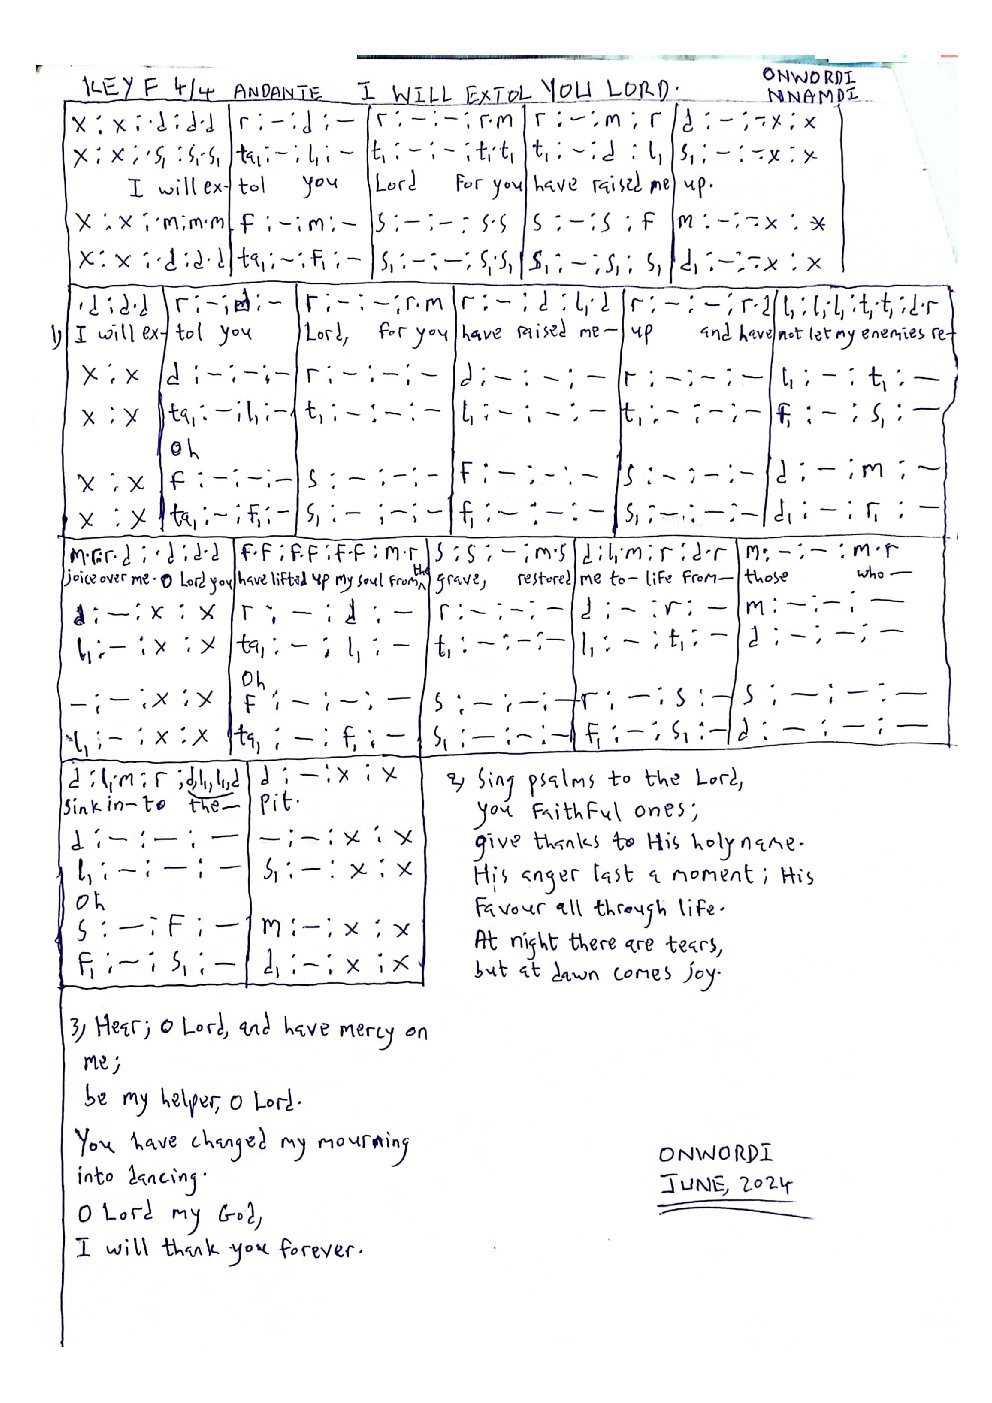 KEY F 4/4 ANDANTE I WILL EXTOL YOU LORD.
ONWORDI
NNAMDI
x : x : ·d : d·d | r : – : d : – | r : – : – : r·m | r : – : m : r | d : – : – x : x
x : x : ·s₁ : s₁·s₁ | ta₁ : – : l₁ : – | t₁ : – : – : t₁·t₁ | t₁ : – : d : l₁ | s₁ : – : – x : x
I will ex- tol you Lord For you have raised me up.
x : x : ·m : m·m | f : – : m : – | s : – : – : s·s | s : – : s : f | m : – : – x : x
x : x : ·d : d·d | ta₁ : – : f₁ : – | s₁ : – : – : s₁·s₁ | s₁ : – : s₁ : s₁ | d₁ : – : – x : x
·d : d·d | r : – : d : – | r : – : – : r·m | r : – : d : l₁·d | r : – : – : r·d | l₁·l₁ : l₁·t₁ : t₁ : d·r
1) I will ex- tol you Lord, for you have raised me – up and have not let my enemies re-
x : x | d : – : – : – | r : – : – : – | d : – : – : – | r : – : – : – | l₁ : – : t₁ : –
x : x | ta₁ : – : l₁ : – | t₁ : – : – : – | l₁ : – : – : – | t₁ : – : – : – | f₁ : – : s₁ : –
Oh
x : x | f : – : – : – | s : – : – : – | f : – : – : – | s : – : – : – | d : – : m : –
x : x | ta₁ : – : f₁ : – | s₁ : – : – : – | f₁ : – : – : – | s₁ : – : – : – | d₁ : – : r₁ : –
m·r : r·d : ·d : d·d | f·f : f·f : f·f : m·r | s : s : – : m·s | d : l₁·m : r : d·r | m : – : – : m·r
joice over me. O Lord you have lifted up my soul from the grave, restored me to – life from – those who –
d : – : x : x | r : – : d : – | r : – : – : – | d : – : r : – | m : – : – : –
l₁ : – : x : x | ta₁ : – : l₁ : – | t₁ : – : – : – | l₁ : – : t₁ : – | d : – : – : –
Oh
– : – : x : x | f : – : – : – | s : – : – : – | r : – : s : – | s : – : – : –
l₁ : – : x : x | ta₁ : – : f₁ : – | s₁ : – : – : – | f₁ : – : s₁ : – | d : – : – : –
d : l₁·m : r : d,l₁,l₁,d | d : – : x : x
sink in – to the – pit.
d : – : – : – | – : – : x : x
l₁ : – : – : – | s₁ : – : x : x
Oh
s : – : f : – | m : – : x : x
f₁ : – : s₁ : – | d₁ : – : x : x
2) Sing psalms to the Lord,
you Faithful ones;
give thanks to His holy name.
His anger last a moment; His
Favour all through life.
At night there are tears,
but at dawn comes joy.
3) Hear; O Lord, and have mercy on
me;
be my helper, O Lord.
You have changed my mourning
into dancing.
O Lord my God,
I will thank you forever.
ONWORDI
JUNE, 2024